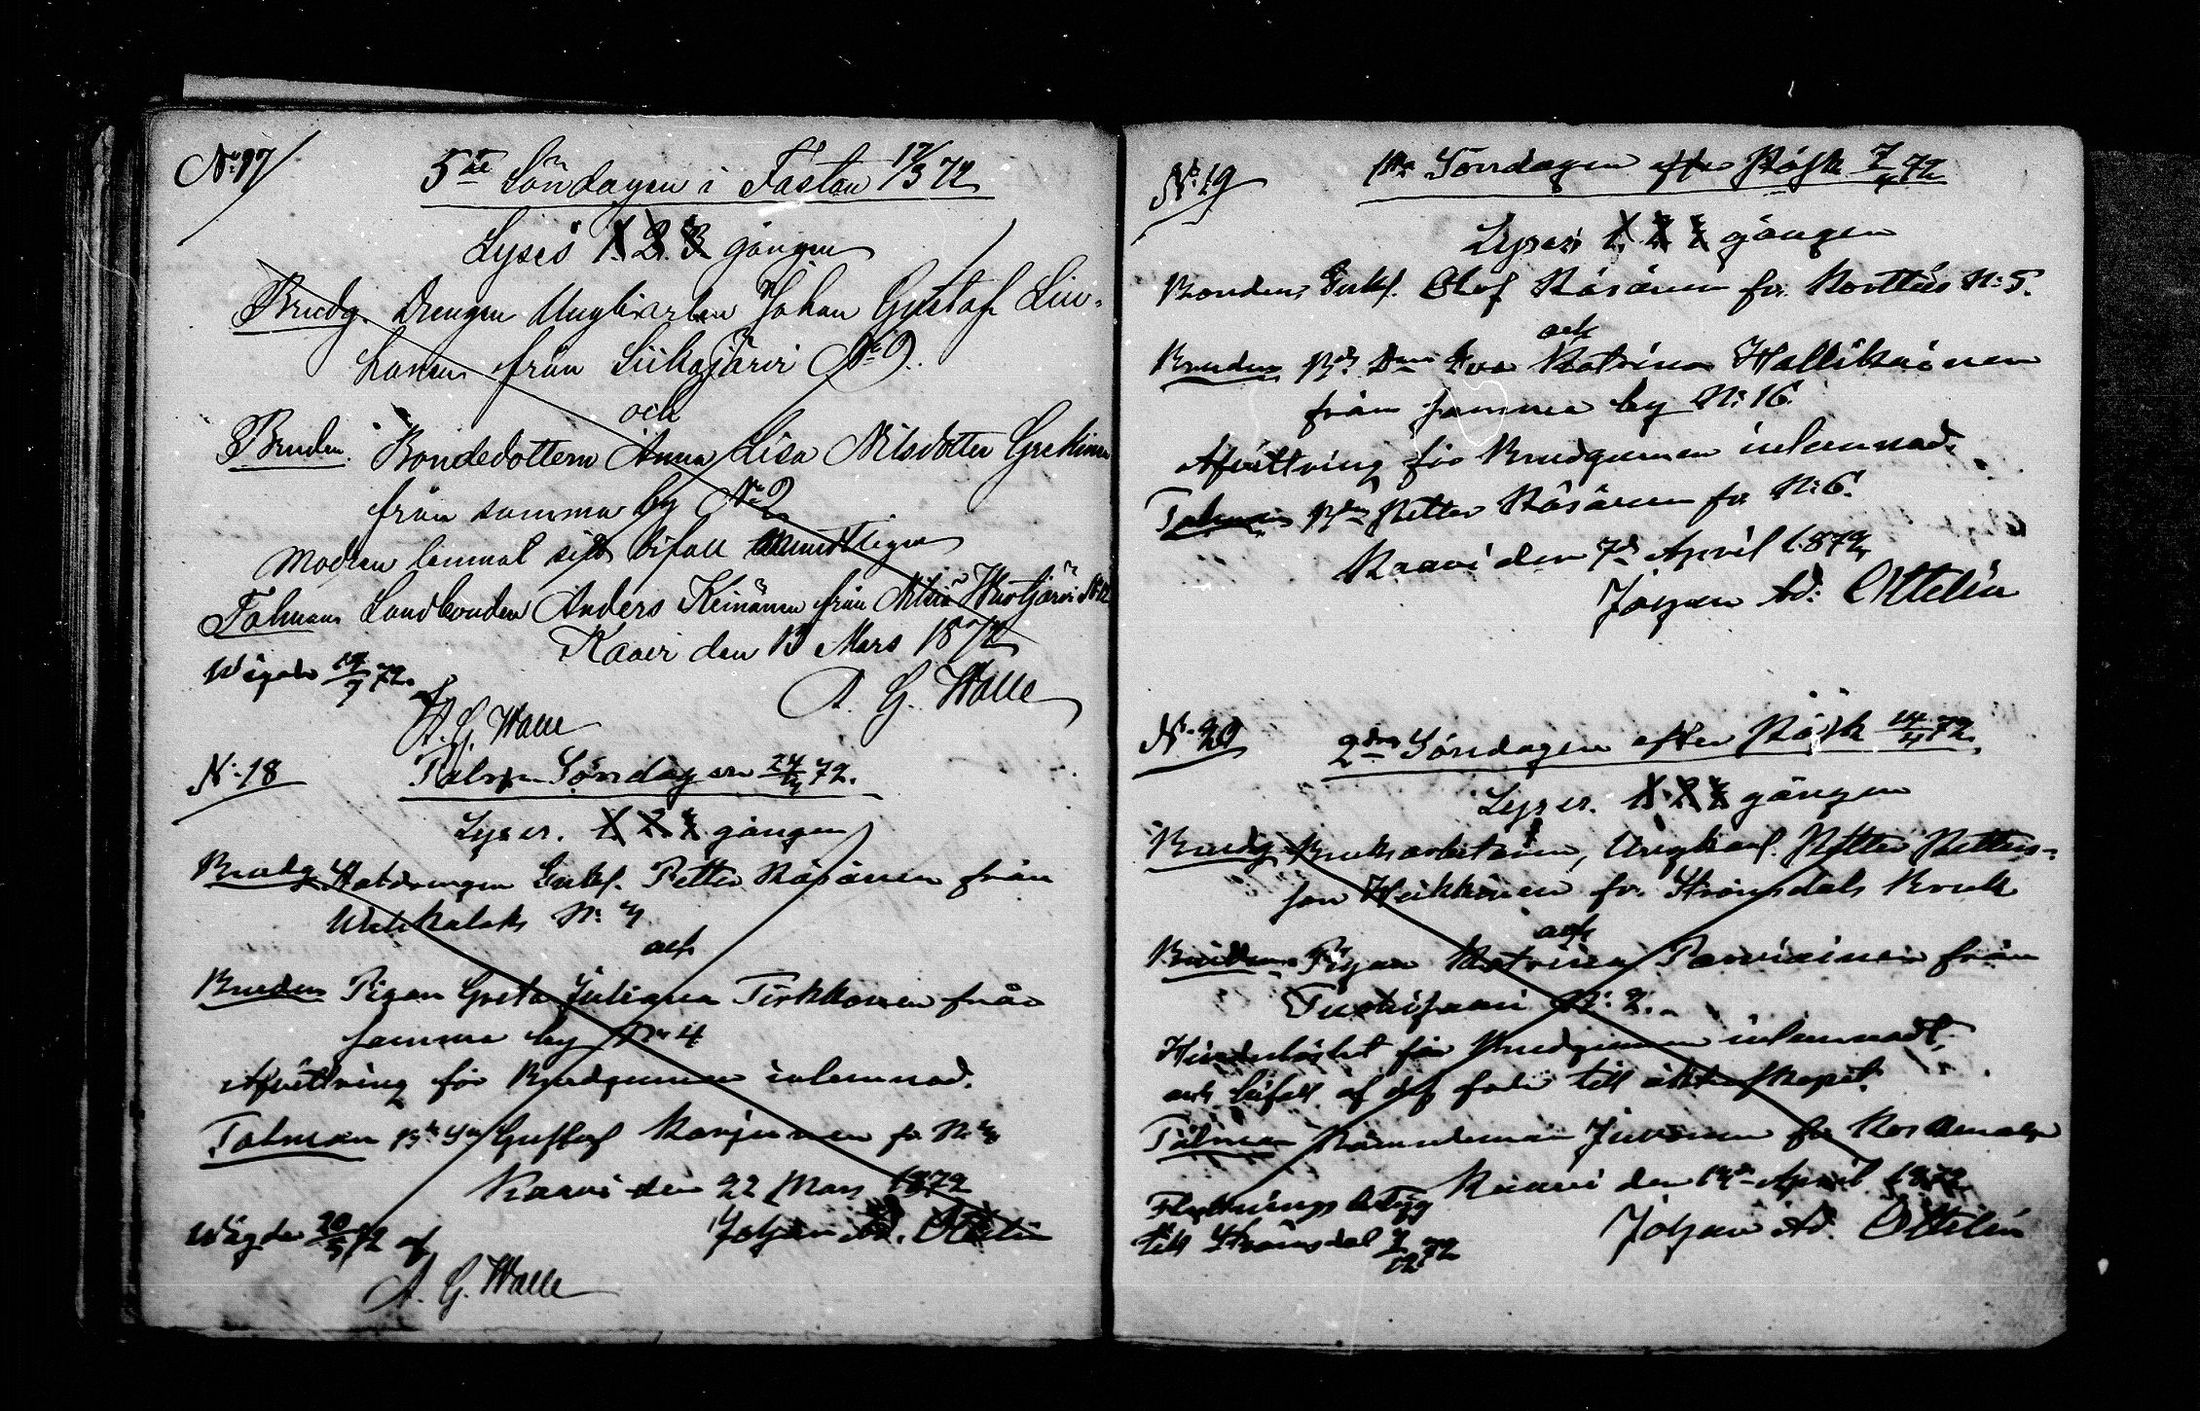 No 17
5te Söndagen i Fastan 17/3 72
Lyses 1. 2. 3 gången
Brudg. Drengen Ungkarlen Johan Gustaf Lin-
hanen från Siikajärvi No 9.
och
Bruden. Bondedottern Anna Lisa Nilsdotter
från samma by No 2
Modren lemnat sitt bifall muntligen
Talman Landbonden Anders Keinänen från Nilsiä
Kaavi den 13 Mars 1872
A. G. Walle
Wigde 14/7 72. af
A. G. Walle
N. 18
Palm Söndagen 24/3 72.
Lyses. 1 2 3 gången
Brudg Enkl. Petter Räsänen från
N:
och
Bruden Pigan Greta Juliana Tirkkonen från
samma by No 4
Afvittring för Brudgummen inlemnad.
Talman Gustaf Karjunen fr. N:
Kaavi den 22 Mars 1872
Johan Ad. Ottelin
Wigde 20/5 72 af
A. G. Walle
N: 19
1sta Söndagen efter Påsk 7/4 72
Lyses 1. 2 3 gången
Bonden Enkl. Olof Räsänen fr. Kortteis N: 5.
och
Bruden Eva Katrina Hallikainen
från samma by N: 16
Afvittring för Brudgummen inlemnad.
Talman Petter Räsänen fr. N: 6.
Kaavi den 7de April 1872
Johan Ad: Ottelin
N. 20
2dra Söndagen efter Påsk 14/4 72.
Lyses. 1 2 3 gången
Brudg Bruksarbetaren, Ungkarl. Petter Petters-
son Heikkinen fr. Strömsdals Bruk
och
Bruden Pigan Katrina Parviainen från
N: 2.
Hinderlöshet för Brudgummen inlemnadt,
och bifall af dess fader till äktenskapet.
Talman Nämndeman Juvonen fr
Kaavi den 14de April 1872
Johan Ad. Ottelin
Flyttnings betyg
till Strömsdal 2/12 72